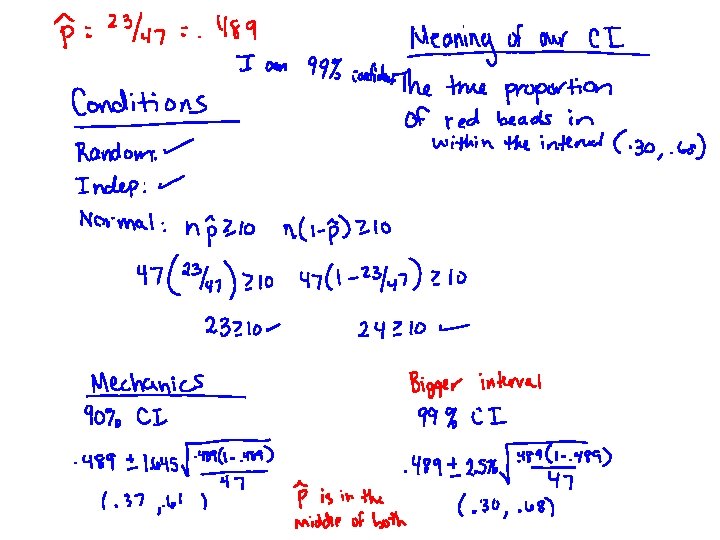 p̂ = 23/47 = .489
Meaning of our CI
I am 99% confident The true proportion
of red beads in
within the interval (.30, .68)
Conditions
Random: ✓
Indep: ✓
Normal: n p̂ ≥ 10 n(1-p̂) ≥ 10
47(23/47) ≥ 10 47(1-23/47) ≥ 10
23 ≥ 10 ✓ 24 ≥ 10 ✓
Mechanics
90% CI
.489 ± 1.645 √(.489(1-.489)/47)
(.37, .61)
Bigger interval
99% CI
.489 ± 2.576 √(.489(1-.489)/47)
(.30, .68)
p̂ is in the
middle of both